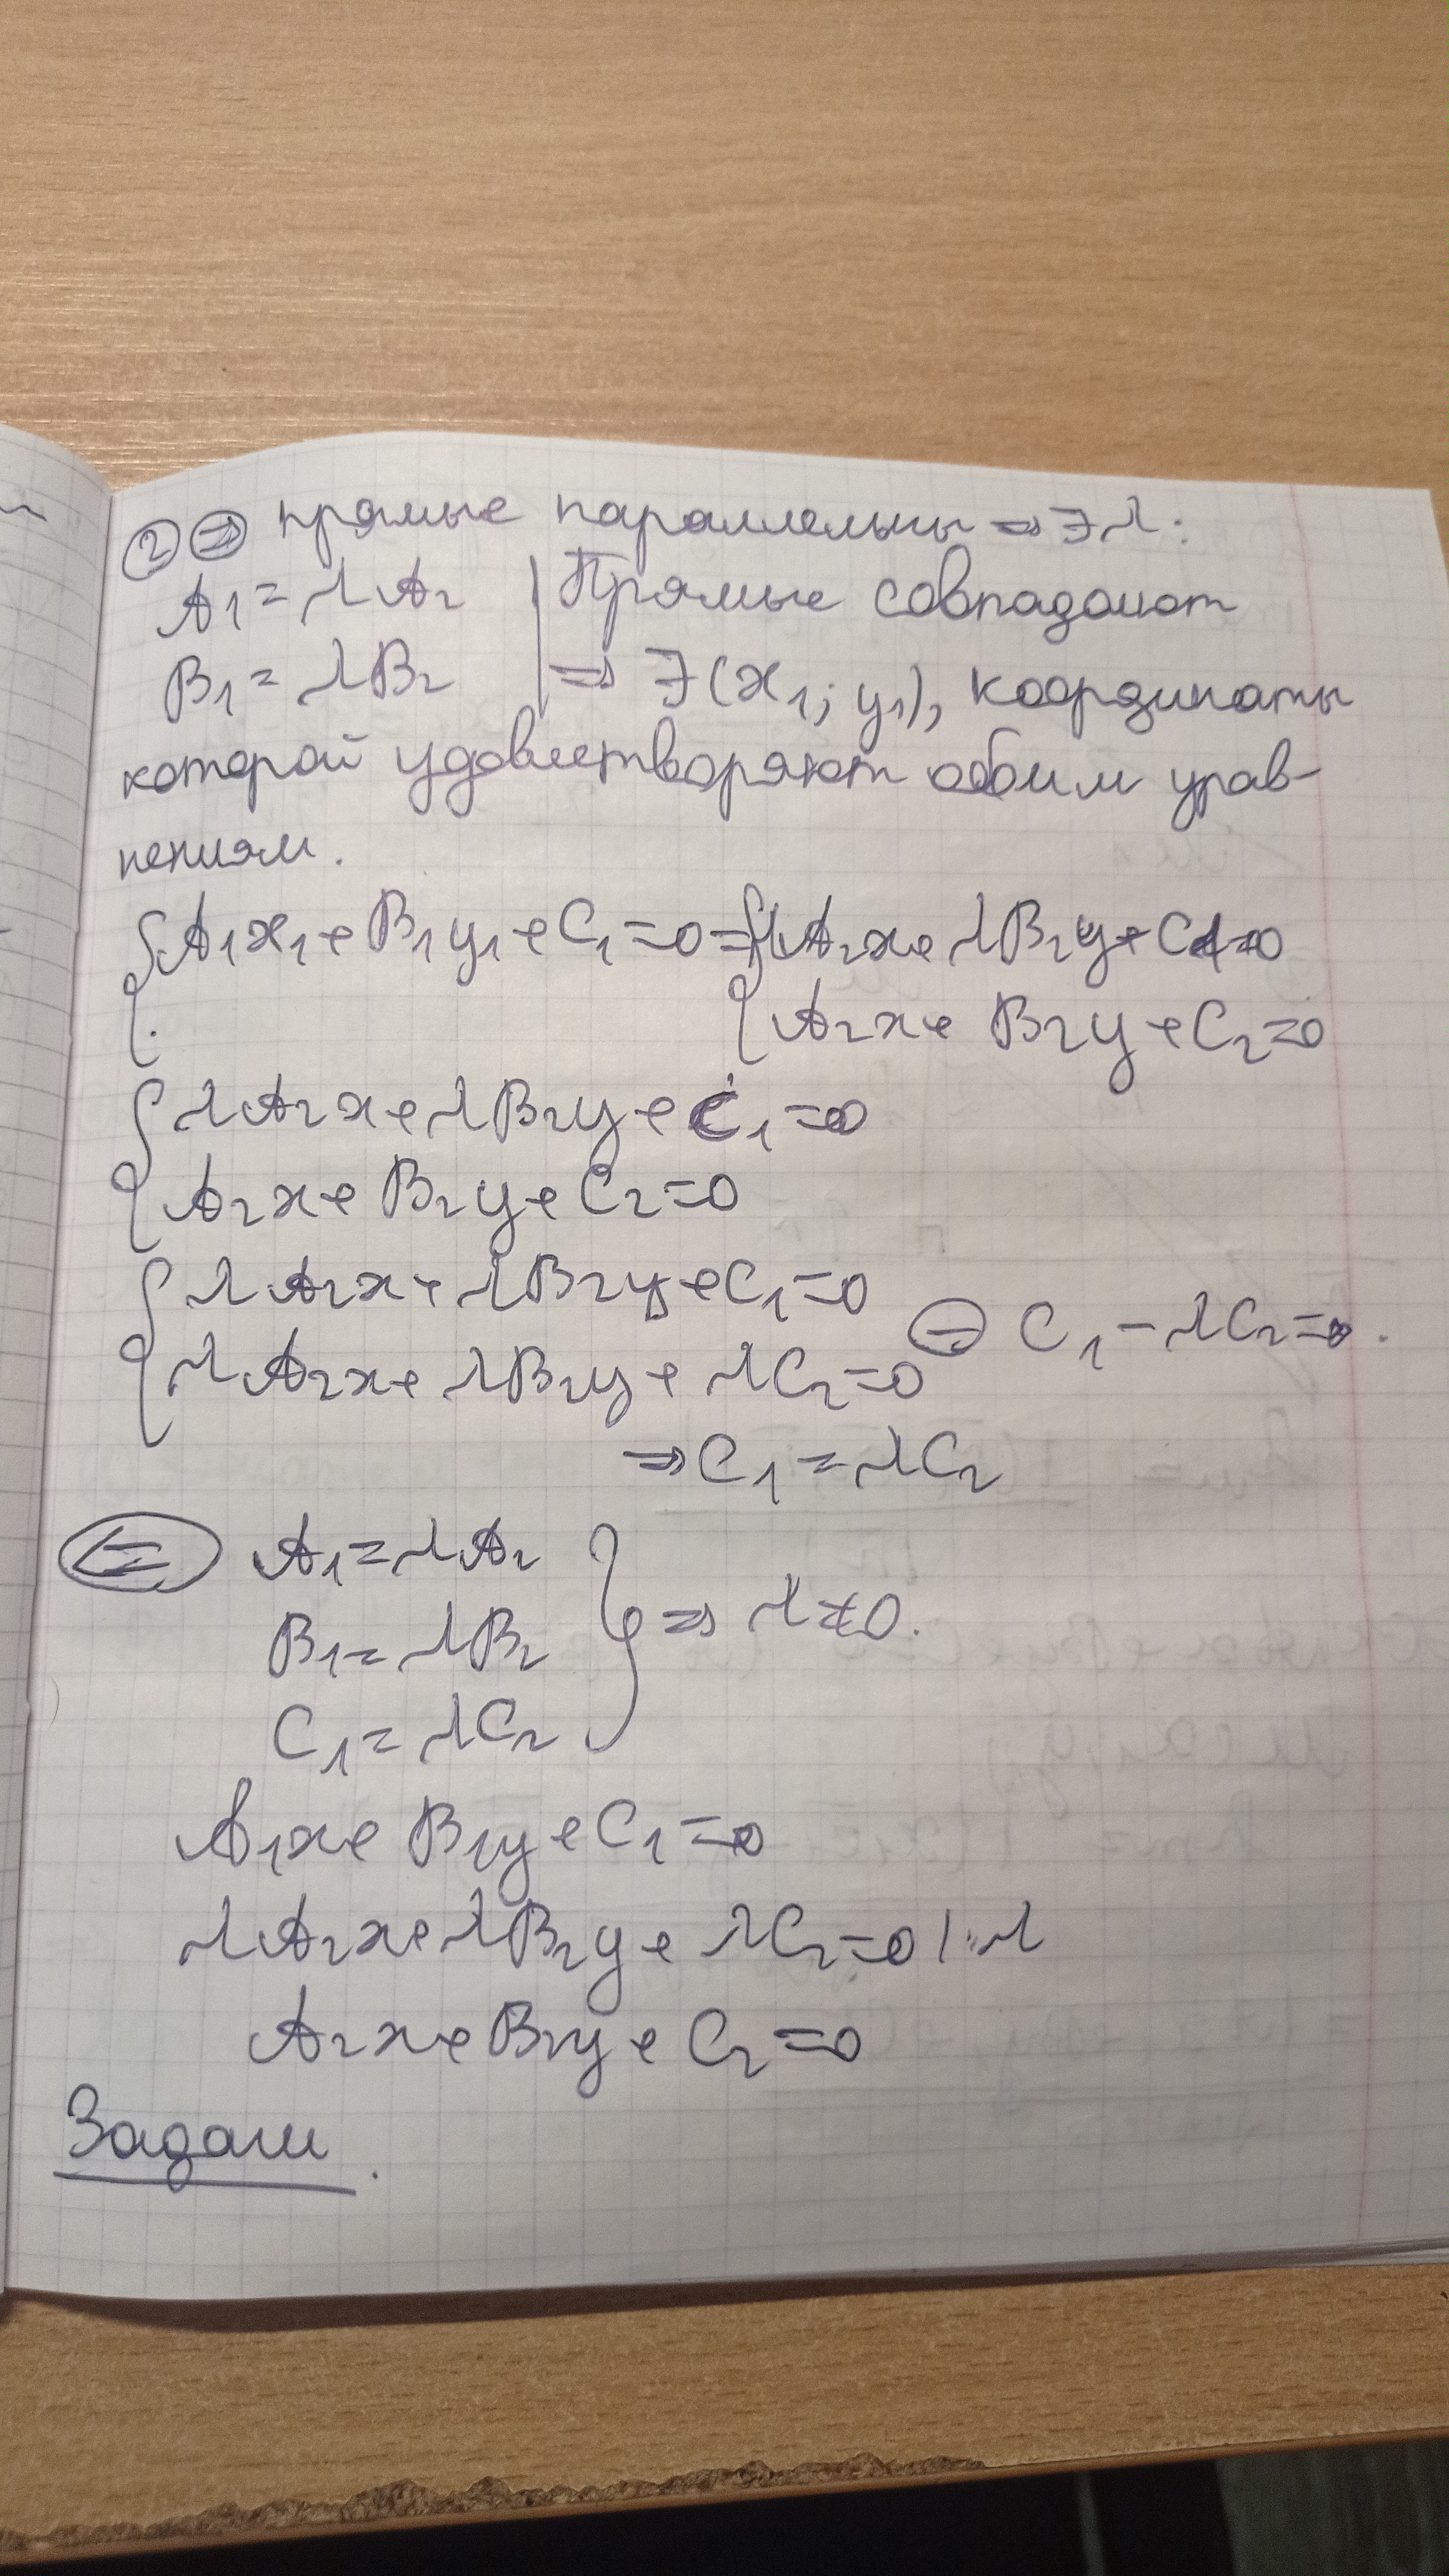 ② ⇒ прямые параллельны ⇒ ∃ λ:
A₁ = λA₂ | Прямые совпадают
B₁ = λB₂ | ⇒ ∃(x₁; y₁), координаты
которой удовлетворяют обоим урав-
нениям.
{A₁x₁ + B₁y₁ + C₁ = 0 = {λA₂x + λB₂y + C1 = 0
{. {A₂x + B₂y + C₂ = 0
{λA₂x + λB₂y + C₁ = 0
{A₂x + B₂y + C₂ = 0
{λA₂x + λB₂y + C₁ = 0
⊖ C₁ − λC₂ = 0.
{λA₂x + λB₂y + λC₂ = 0
⇒ C₁ = λC₂
⇐ A₁ = λA₂
B₁ = λB₂ } ⇒ λ ≠ 0.
C₁ = λC₂
A₁x + B₁y + C₁ = 0
λA₂x + λB₂y + λC₂ = 0 | : λ
A₂x + B₂y + C₂ = 0
Задачи.